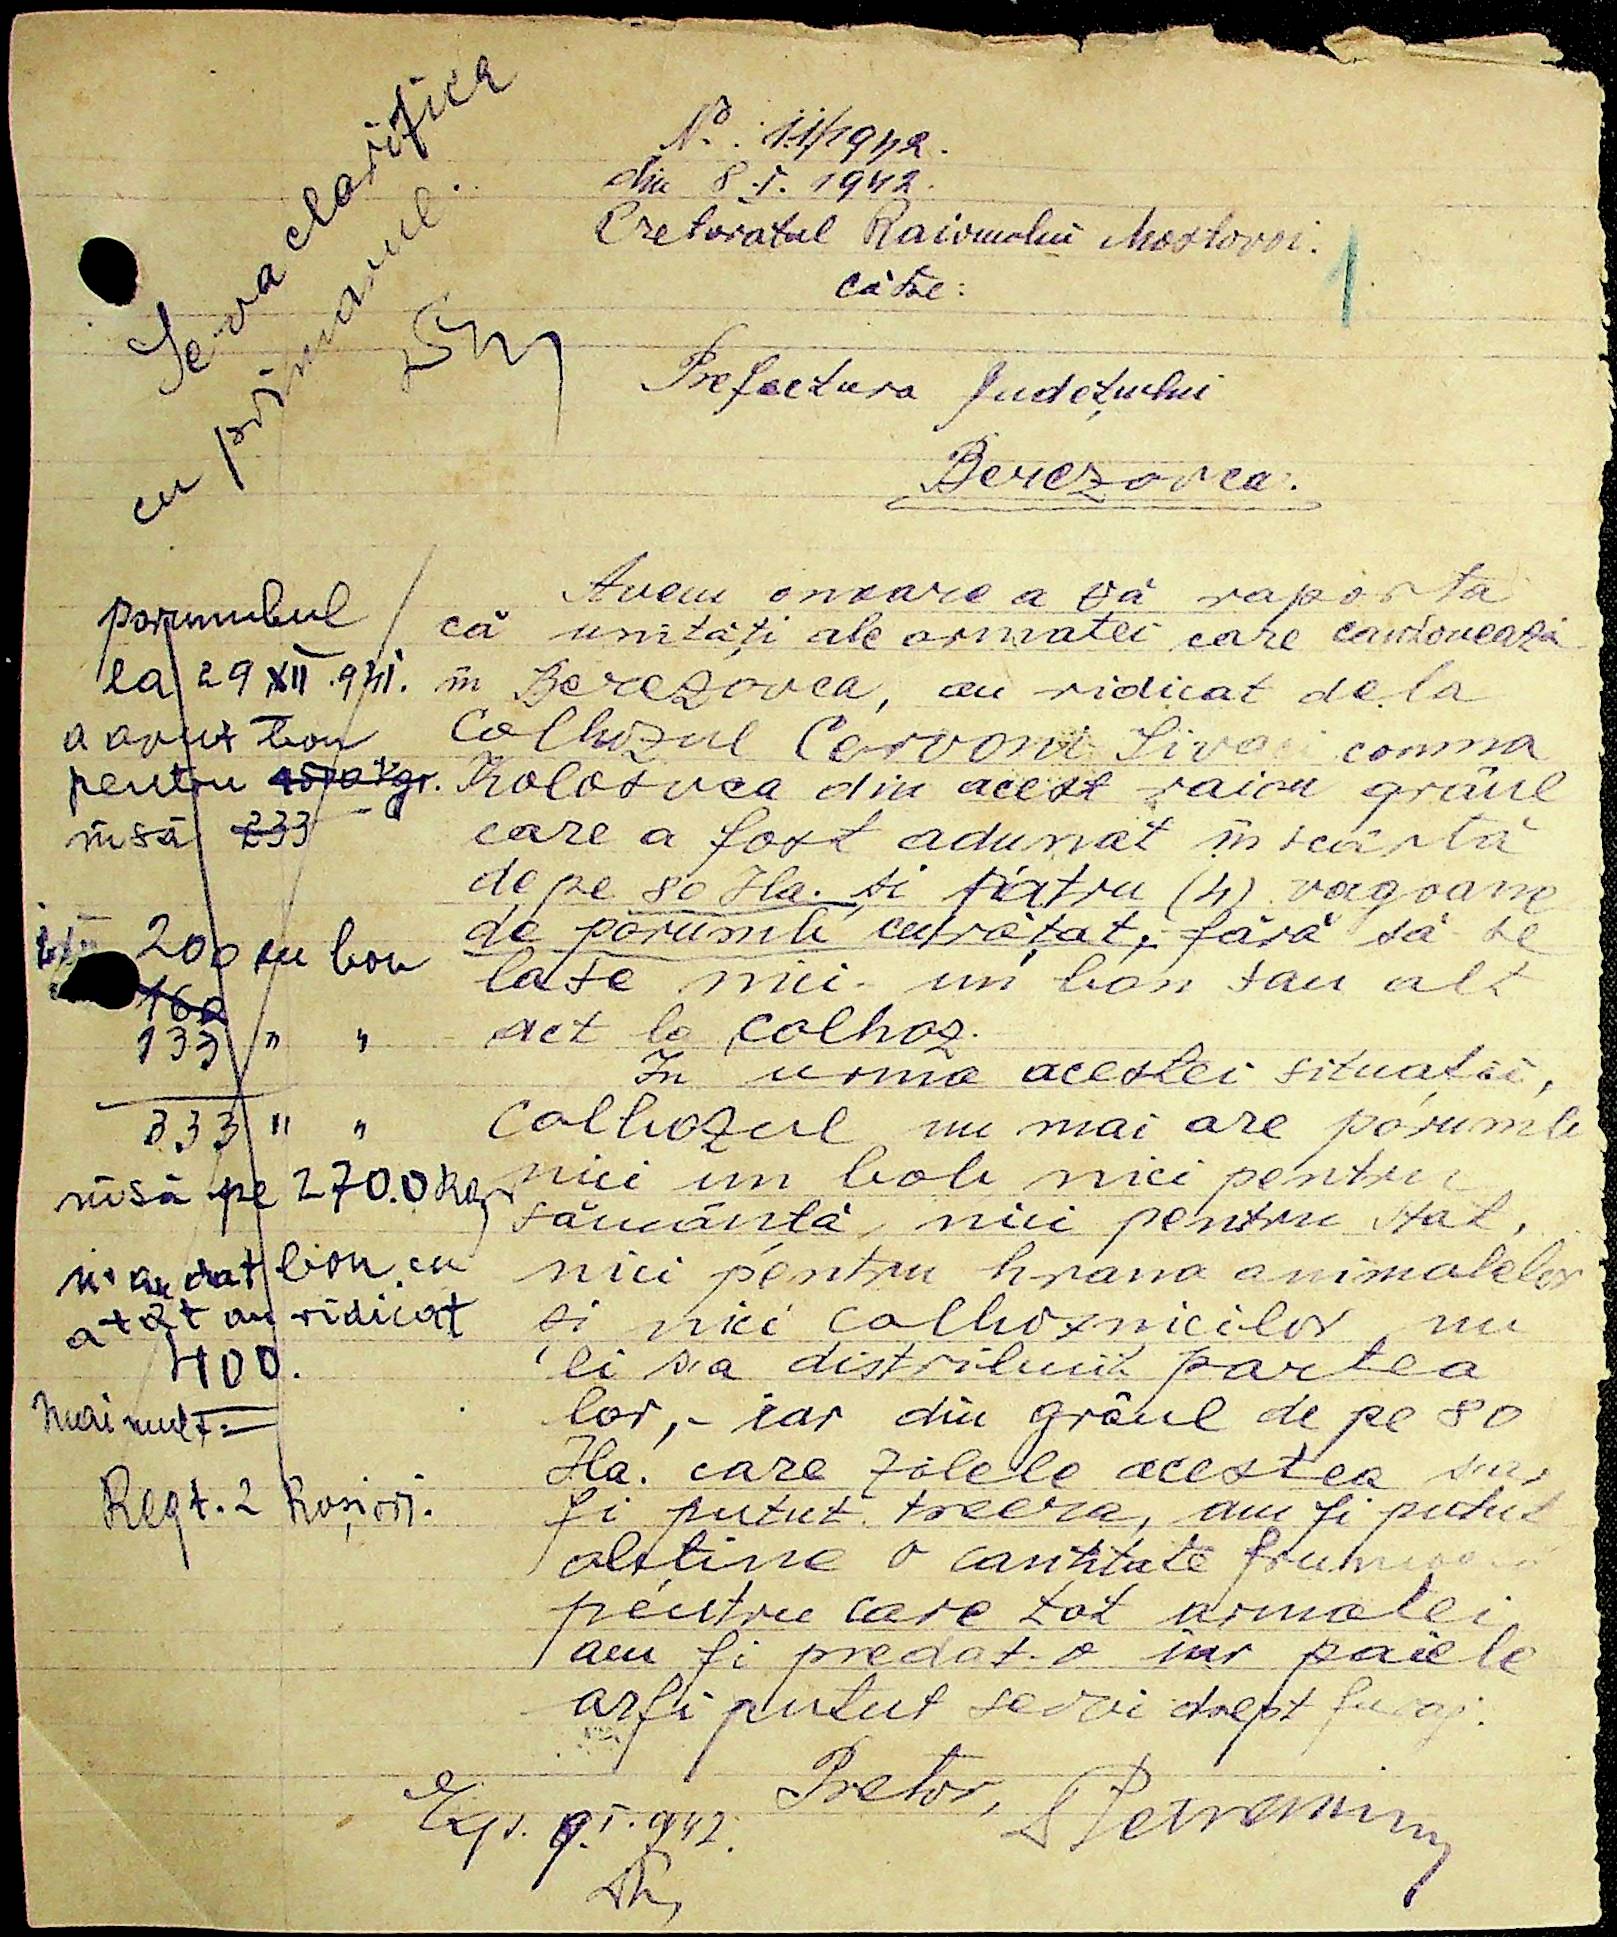 Nº. 11/1942.
din 8.I. 1942.
Pretoratul Raionului Mostovoi.
către:
1
Prefectura Județului
Berezovca.
Se va clarifica
cu primarul.
Avem onoare a vă raporta
că unități ale armatei care cantonează
în Berezovca, au ridicat de la
Colhozul Cervoni comuna
din acest raion grâul
care a fost adunat în
de pe 80 Ha. și patru (4) vagoane
de porumb curățat, fără să se
lase nici un bon sau alt
act la colhoz.
In urma acestei situații,
Colhozul nu mai are porumb
nici un bob nici pentru
sămânță, nici pentru stat,
nici pentru hrana animalelor
și nici colhoznicilor nu
li s'a distribuit partea
lor, - iar din grâul de pe 80
Ha. care zilele acestea s'ar
fi putut treera, am fi putut
obține o cantitate frumoasă
pentru care tot armatei
am fi predat-o iar paiele
ar fi putut servi drept furaj.
Pretor,
Exp. 9.I.942.
porumbul
la 29 XII .941.
a avut bon
pentru kgr.
însă 233
200 cu bon
160
133 " "
333 " "
însă pe 2700 kg
n'au dat bon cu
atât au ridicat
400.
mai mult
Regt. 2 Roșiori.